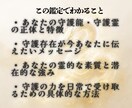 この鑑定でわかること
・あなたの守護龍・守護霊
の正体と特徴
・守護存在が今あなたに伝
えたいメッセージ
・あなたの霊的な素質と潜
在的な強み
・守護の力を日常で受け取
るための具体的な方法